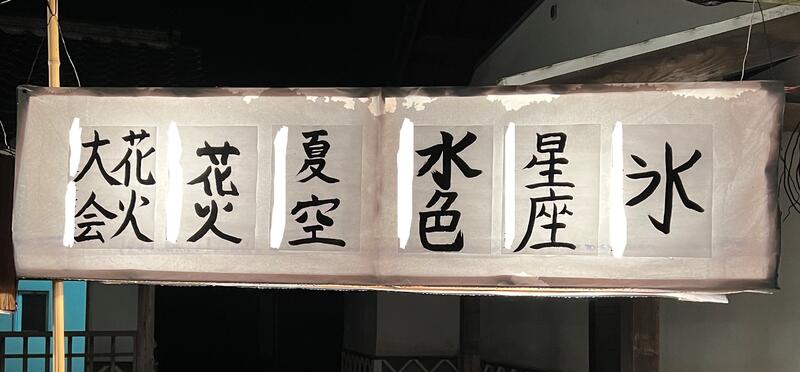 氷
星座
水色
夏空
花火
花火
大会